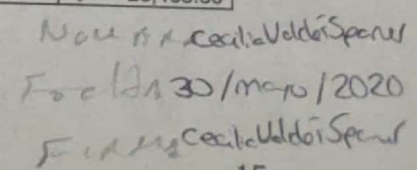 Nombre Cecilia Valdói Spaner
Fecha 30/mayo/2020
Firma Cecilia Valdói Spaner